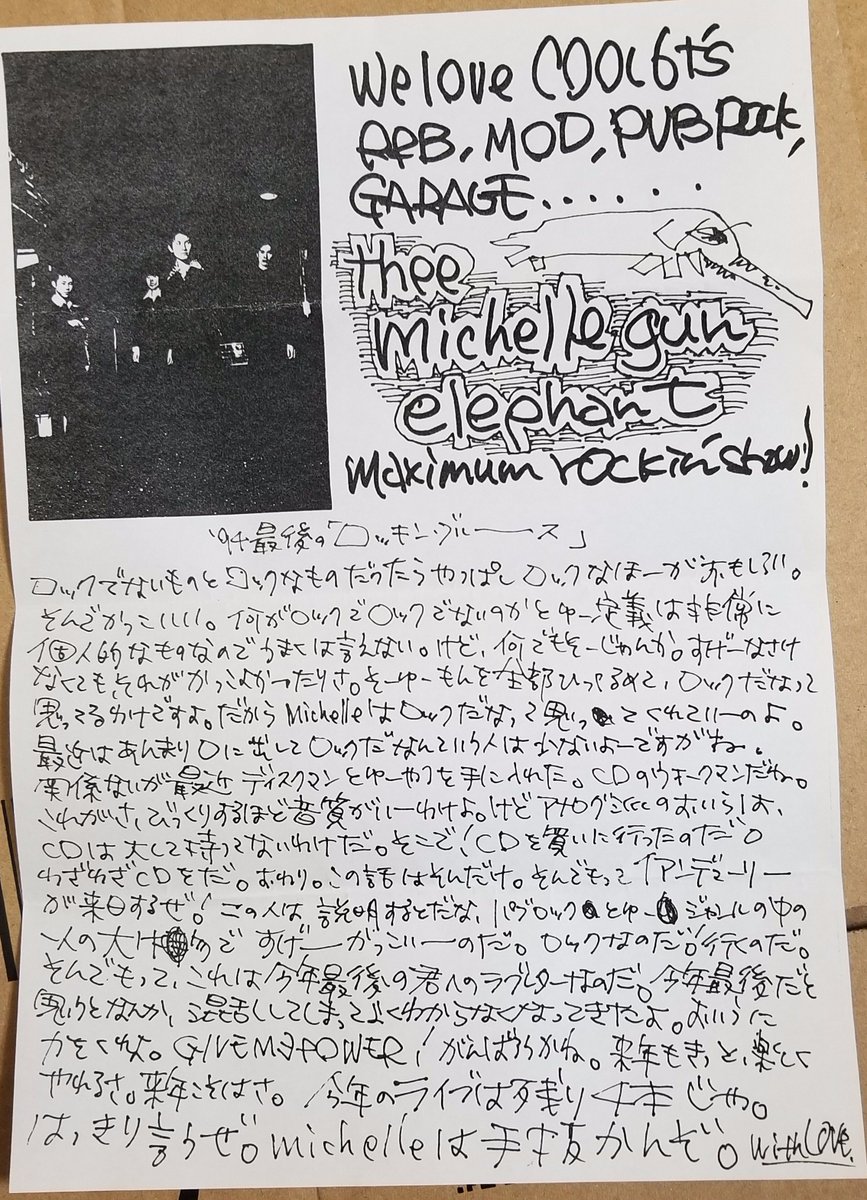 We love COOL 6t's
R&B, MOD, PUB ROCK,
GARAGE......
thee
michelle gun
elephant
maximum rockin' show!
'94最後の「ロッキン・ブルース」
ロックでないものとロックなものだったらやっぱしロックなほーがおもしろい。
そんでかっこいいい。何がロックでロックでないのかとゆー定義は非常に
個人的なものなのでうまくは言えない。けど、何でもそーじゃんか。すげーなさけ
なくても、それがかっこよかったりさ。そーゆーもんを全部ひっくるめて、ロックだなって
思ってるわけですよ。だからMichelleはロックだなって思ってくれていーのよ。
最近はあんまり口に出してロックだなんていう人は少ないよーですがね。
関係ないが最近ディスクマンとゆーやつを手に入れた。CDのウォークマンだね。
これがさ、びっくりするほど音質がいーわけよ。けどアナログ のおいらは、
CDは大して持ってないわけだ。そこで!CDを買いに行ったのだ。
わざわざCDをだ。おわり。この話はそんだけ。そんでもって
が来日するぜ!この人は、説明するとだな、パブロックとゆージャンルの中の
一人の大 物ですげーかっこいーのだ。ロックなのだ!行くのだ。
そんでもって、これは今年最後の君へのラブレターなのだ。今年最後だと
思うとなんか、混乱してしまってよくわからなくなってきたよ。おいらに
力をくれよ。GIVE ME POWER!がんばろうかね。来年もきっと、楽しく
やれるさ。来年こそはさ。今年のライブは残り4本じゃ。
はっきり言うぜ。michelleは手抜かんぞ。with LOVE.